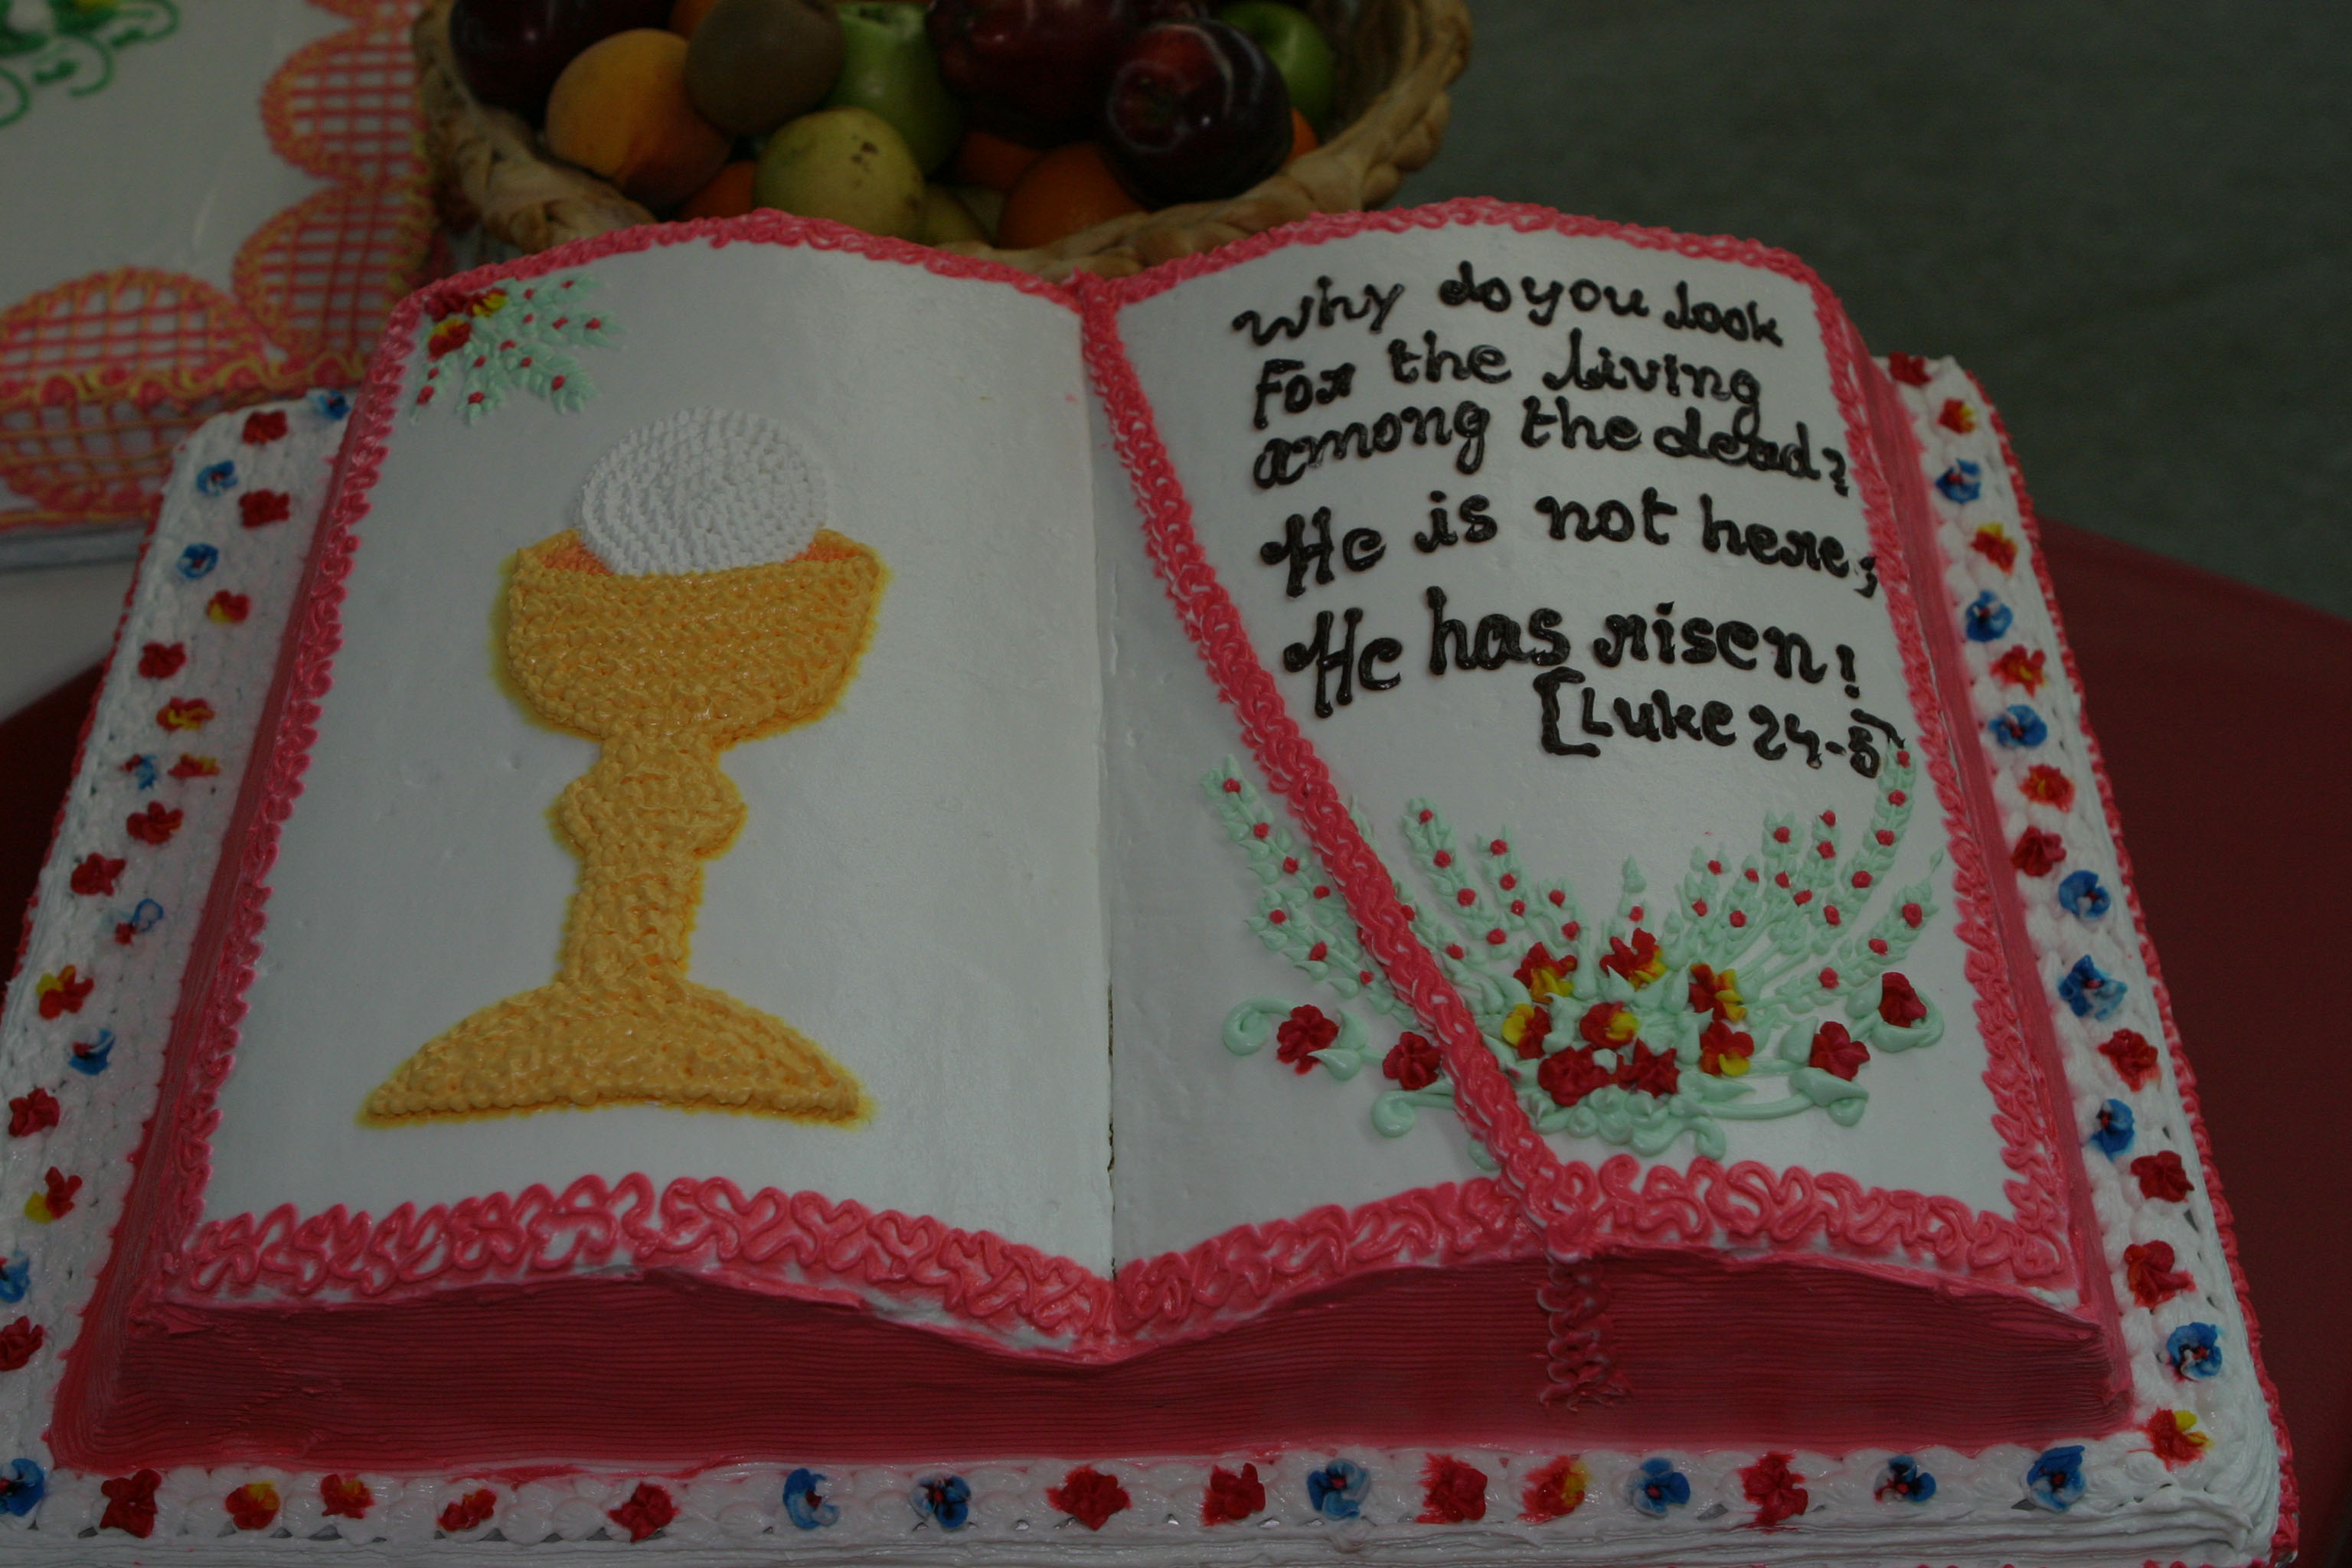 Why do you look
For the living
among the dead?
He is not here;
He has risen!
[Luke 24-5]